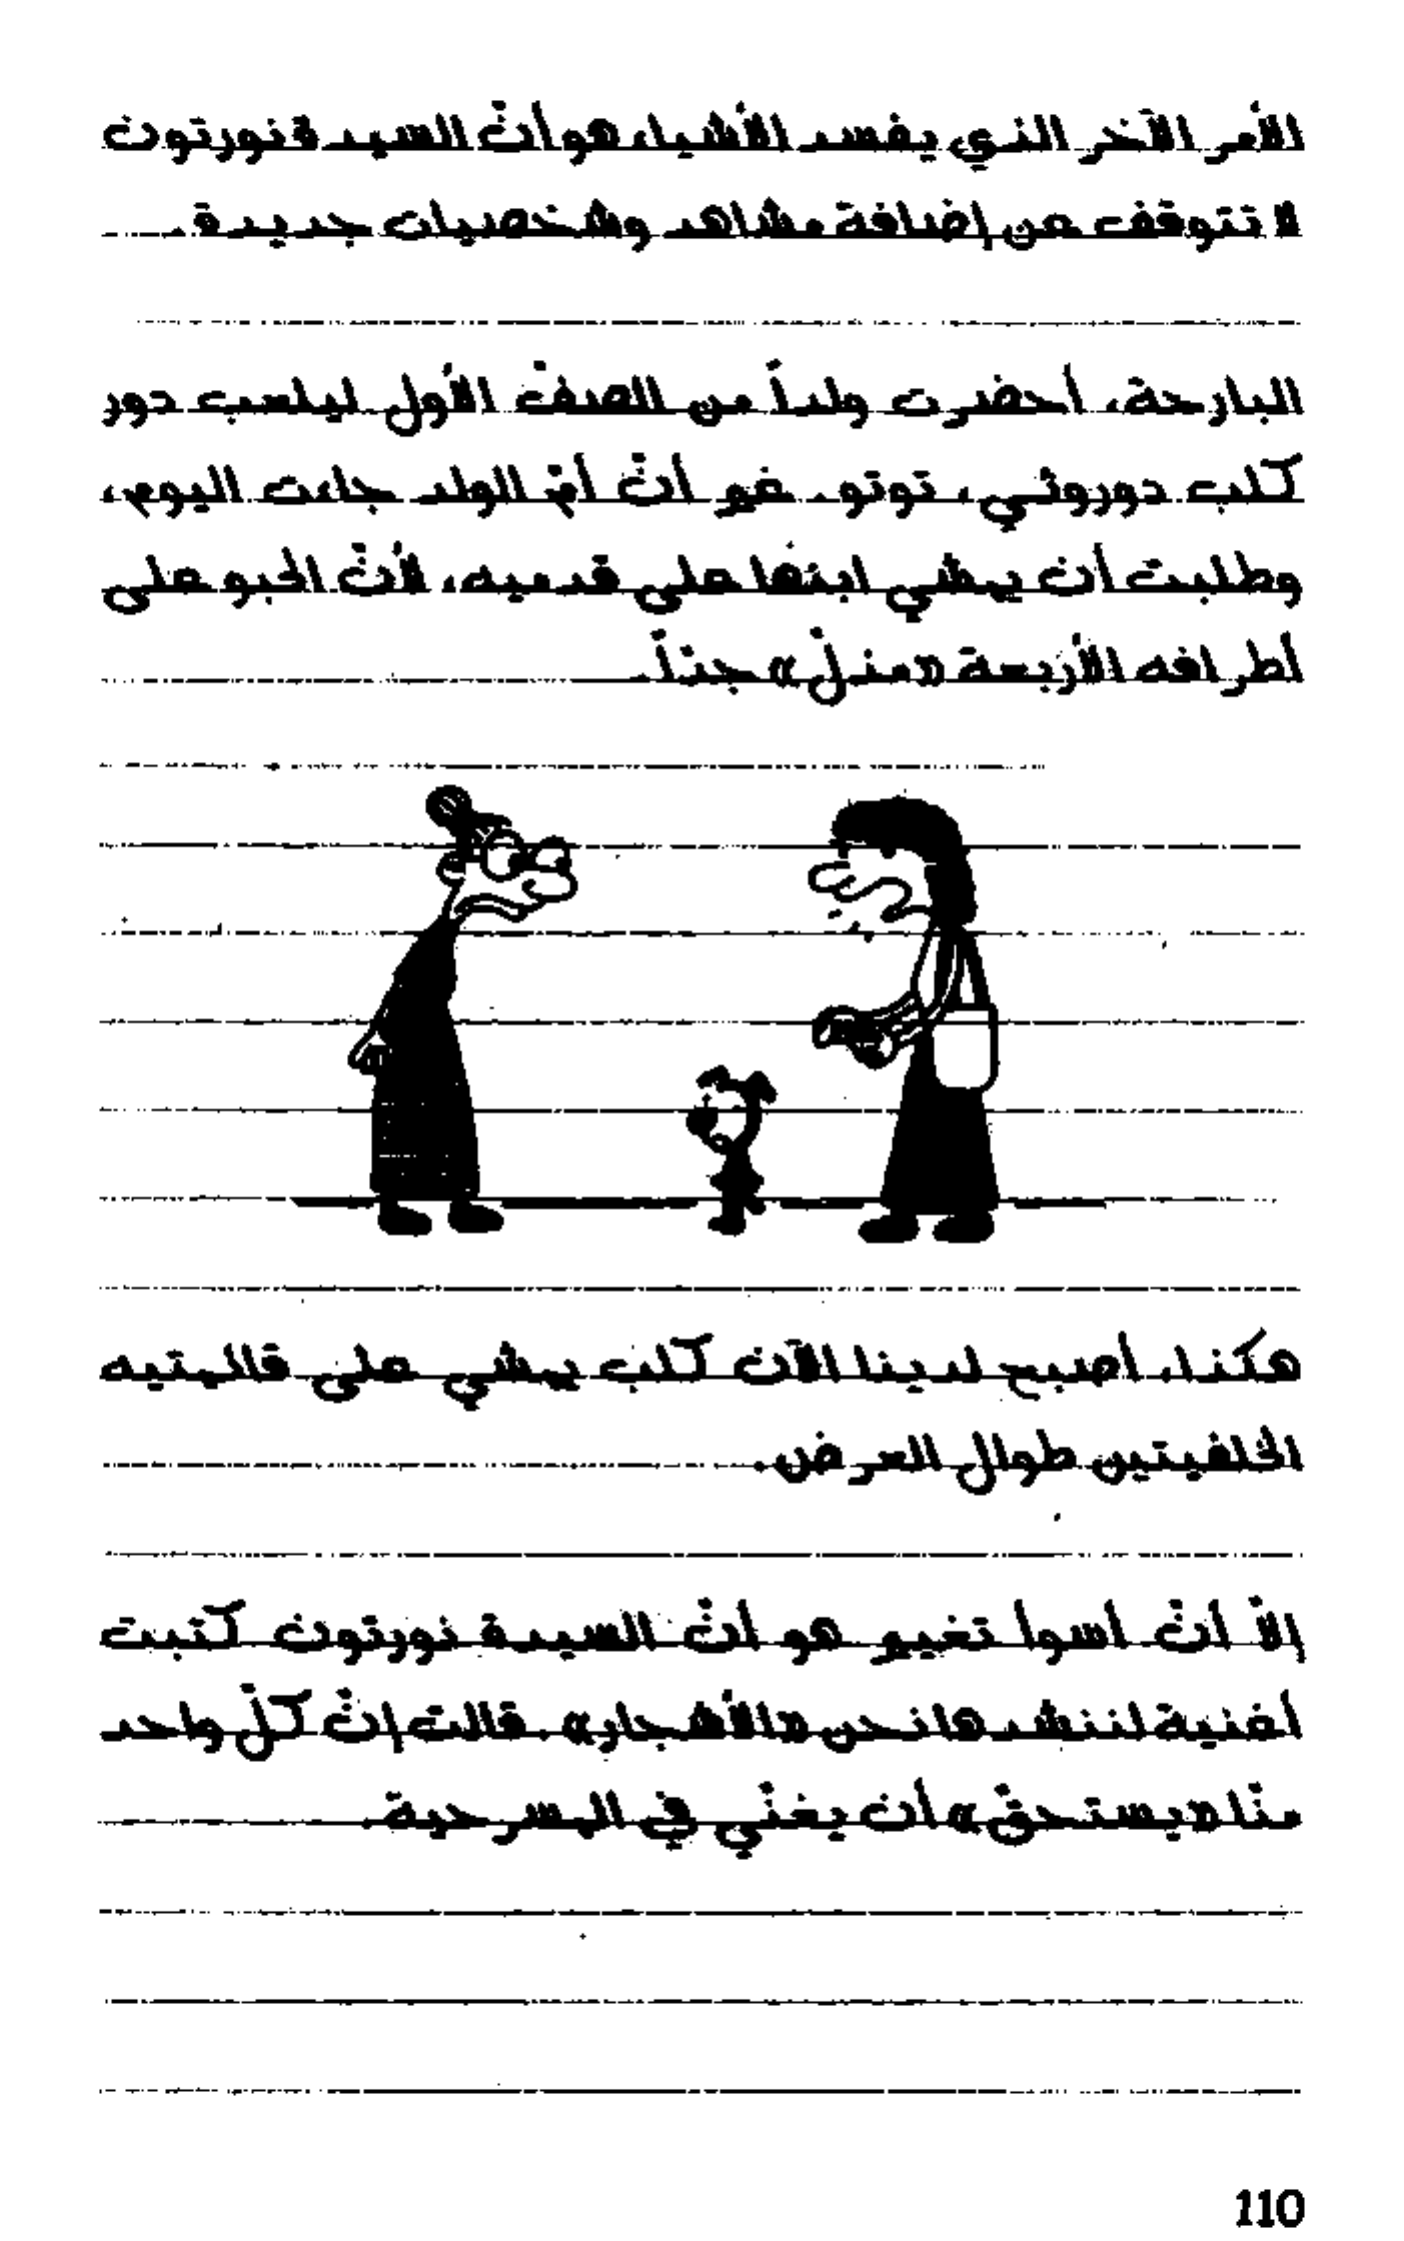 الأمر الآخر الذي يفسد الأشياء هو أنّ السيدة نورتون
لا تتوقف عن إضافة مشاهد وشخصيات جديدة.
البارحة، أحضرت ولداً من الصفّ الأول ليلعب دور
كلب دوروثي، توتو. غير أنّ أمّ الولد جاءت اليوم،
وطلبت أن يمشي ابنها على قدميه، لأنّ الحبو على
أطرافه الأربعة «مذلّ» جدّاً.
هكذا، أصبح لدينا الآن كلب يمشي على قائمتيه
الخلفيتين طوال العرض.
إلاّ أنّ أسوأ تغيير هو أنّ السيدة نورتون كتبت
أغنية لننشدها نحن «الأشجار». قالت إنّ كلّ واحد
منّا «يستحقّ» أن يغنّي في المسرحية.
110